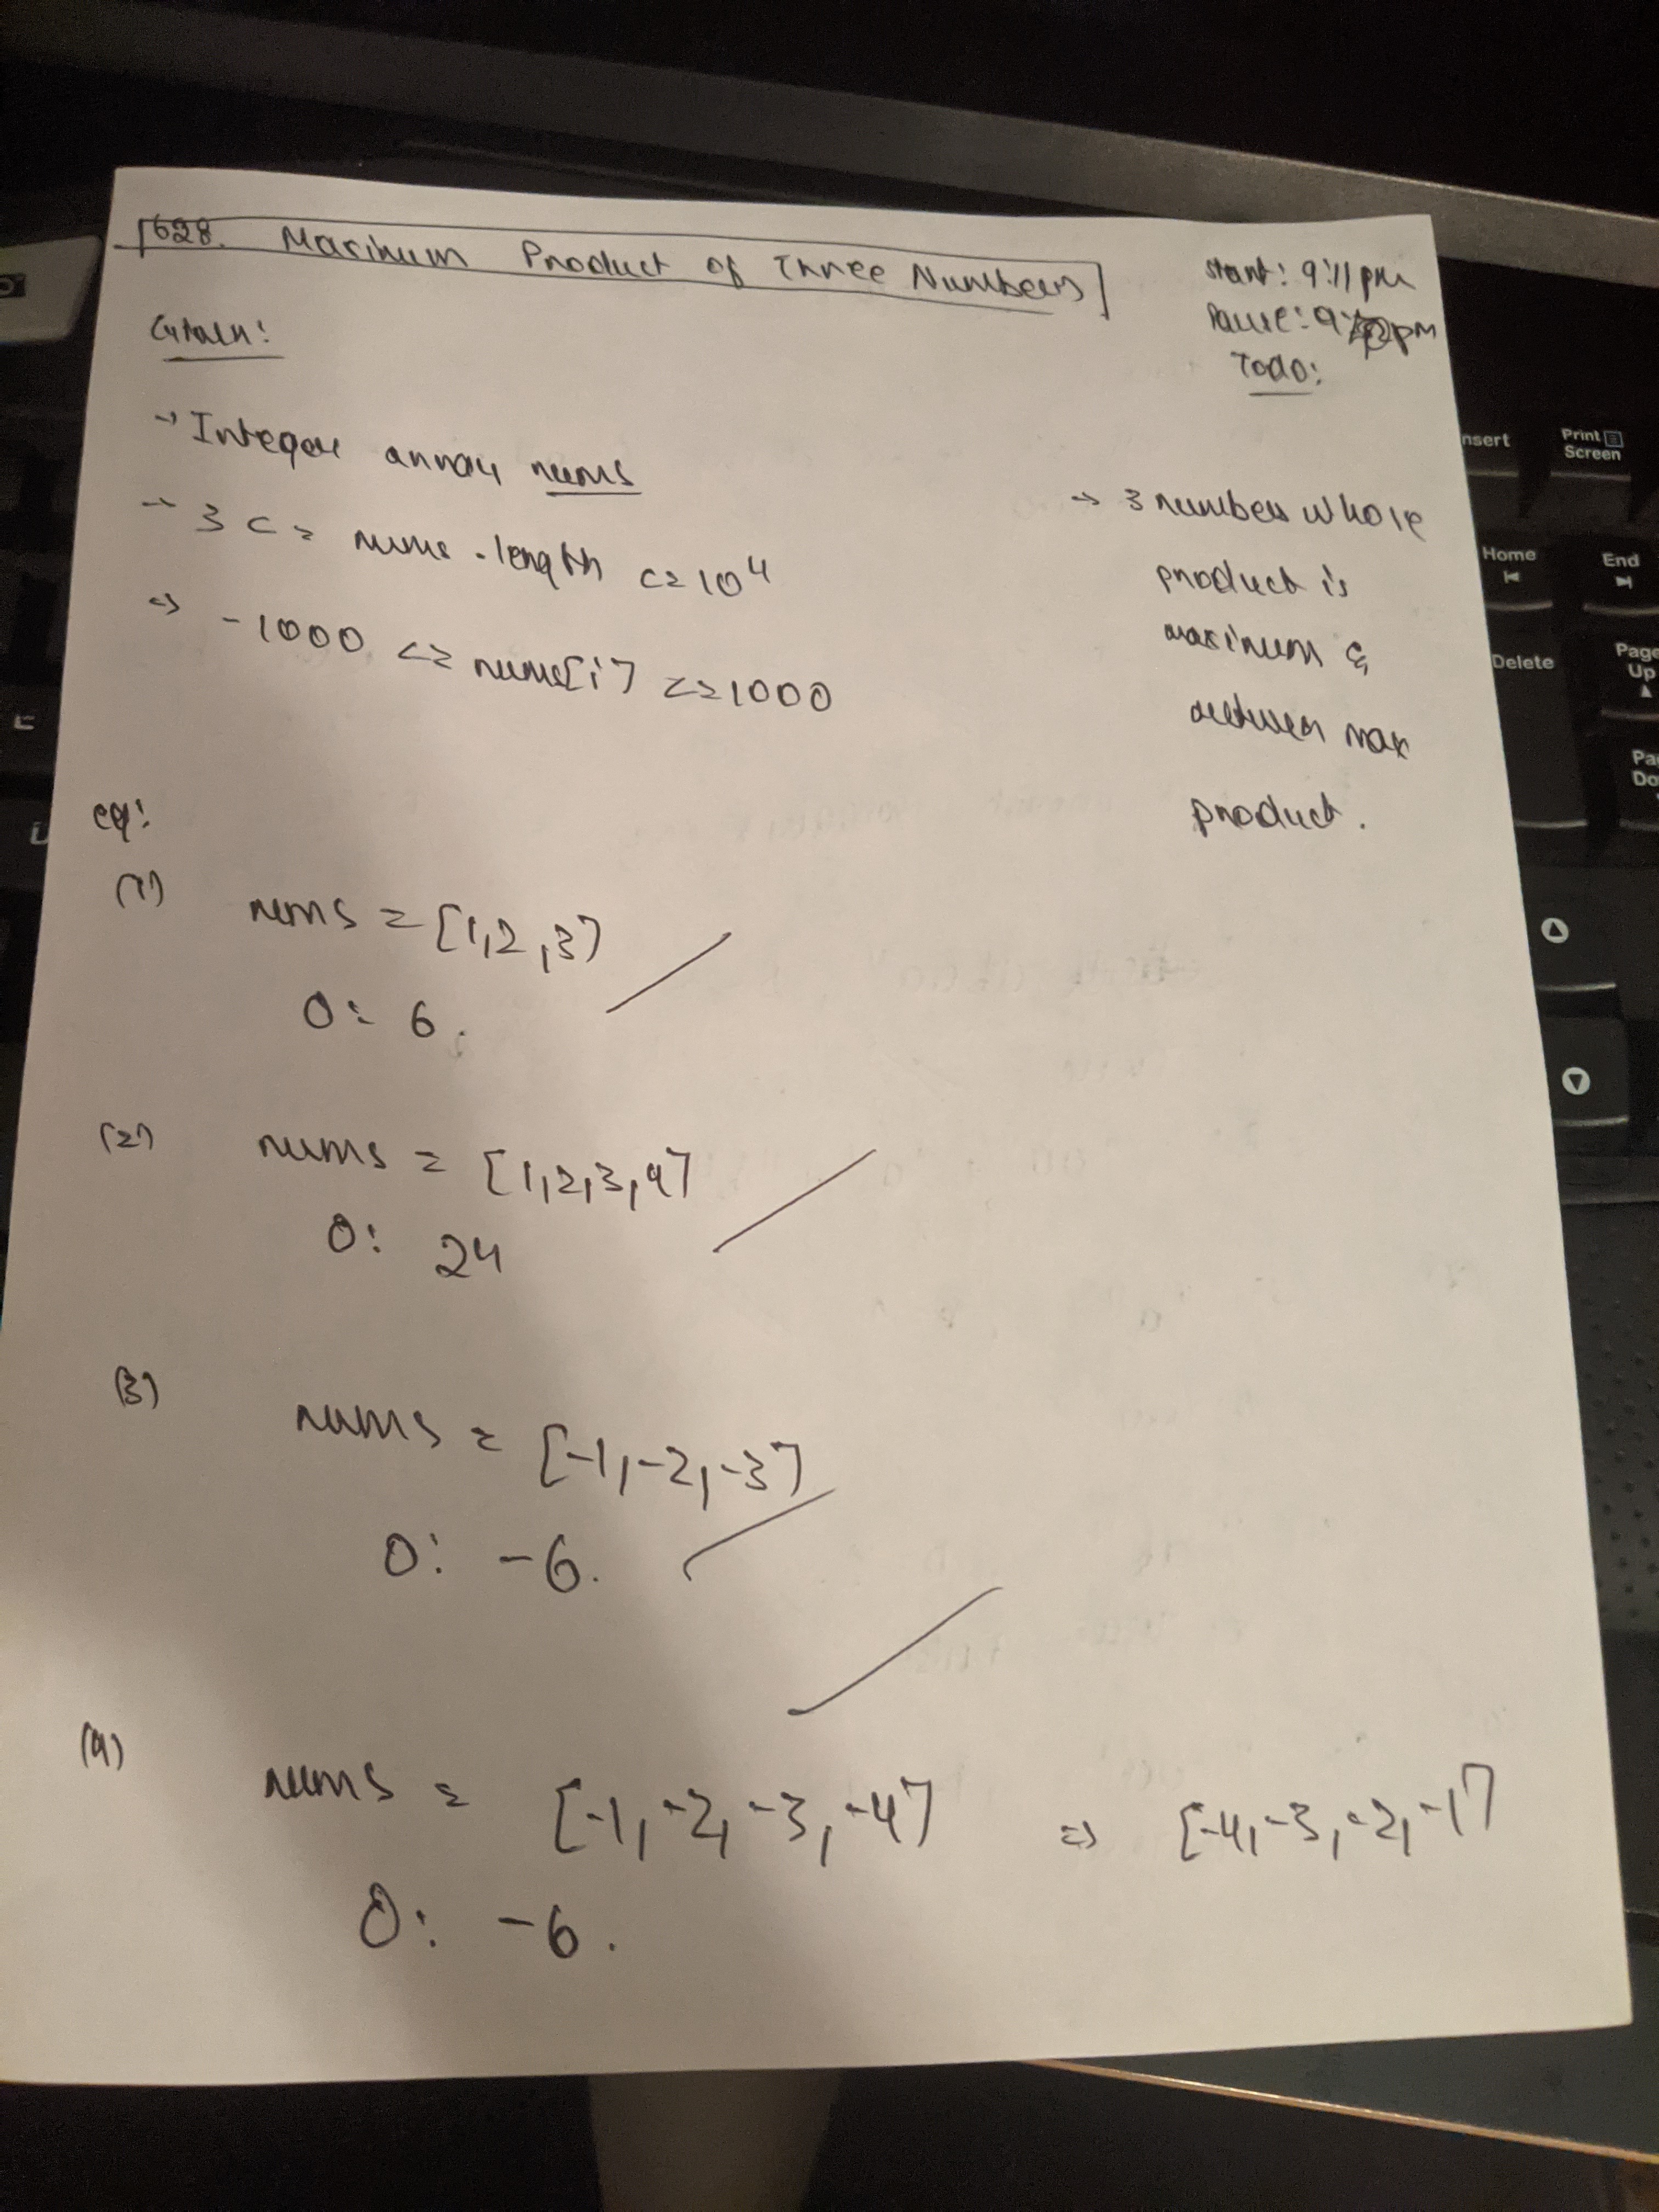 628. Maximum Product of Three Numbers
Start: 9:11 pm
Pause: 9: pm
Todo:
Given:
→ Integer array nums
→ 3 <= nums.length <= 10^4
→ -1000 <= nums[i] <= 1000
→ 3 numbers whose
product is
maximum &
return max
product.
eg:
(1) nums = [1,2,3]
O: 6.
(2) nums = [1,2,3,4]
O: 24
(3) nums = [-1,-2,-3]
O: -6.
(4) nums = [-1,-2,-3,-4] => [-4,-3,-2,-1]
O: -6.
Insert
Print Screen
Home
End
Delete
Page Up